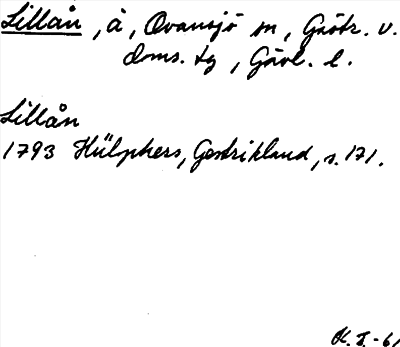 Lillån, å, Ovansjö sn, Gästr. v.
doms. tg, Gävl. l.
Lillån
1793 Hülphers, Gestrikland, s. 171.
K. I. -61